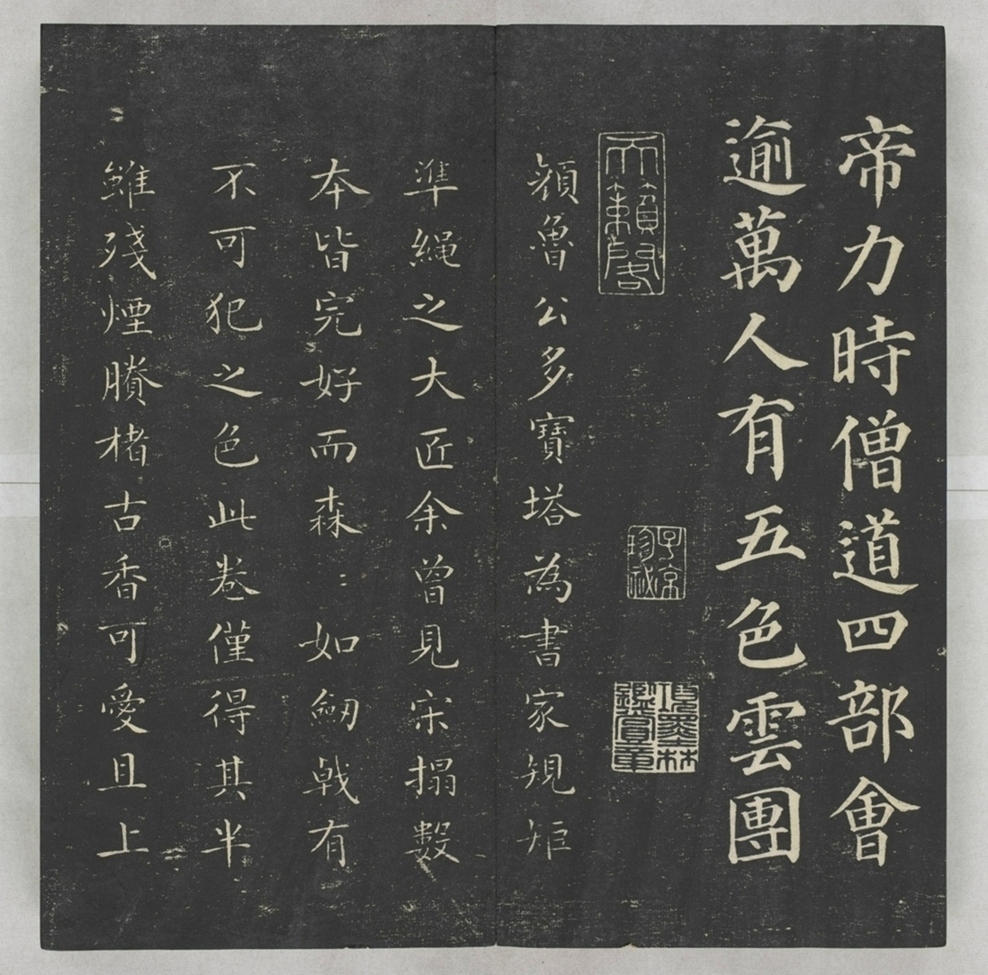 帝力時僧道四部會
逾萬人有五色雲團
天籟閣
子京珍祕
項墨林鑑賞章
顏魯公多寶塔為書家規矩
準繩之大匠余曾見宋搨數
本皆完好而森：如劒戟有
不可犯之色此卷僅得其半
雖殘煙賸楮古香可愛且上